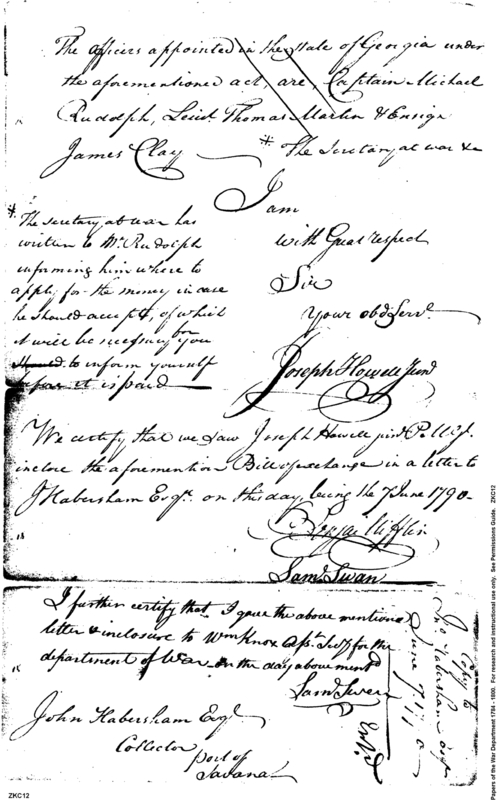 The officers appointed in the state of Georgia under
the aforementioned act, are, Captain Michael
Rudolph, Lieut. Thomas Martin & Ensign
James Clay
* The Secretary at war &c
I am
with Great respect
Sir
Your obd Servt.
Joseph Howell Junr
* The secretary at war has
written to Mr. Rudolph
informing him where to
apply for the money in case
he should accept, of which
it will be necessary for you
should to inform yourself
before it is paid
We certify that we saw Joseph Howell junr P.M.G.
inclose the aforemention Bill of exchange in a letter to
J Habersham Esqr. on this day being the 7 June 1790-
Benjai Mifflin
Saml. Swan
I further certify that I gave the above mentiond
letter & inclosure to Wm Knox Asst. Secy for the
department of War on the day abovement
Saml Swan
John Habersham Esqr
Collector
port of
Savana
Copy to
Jno Habersham Esqr
June 7. 1790
Entd
ZKC12
Papers of the War Department 1784 - 1800. For research and instructional use only. See Permissions Guide. ZKC12